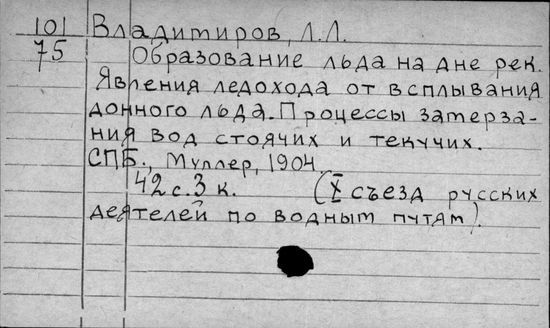 101 Владитиров, Л.Л.
75 Образование льда на дне рек.
Явления ледохода от всплывания
донного льда. Процессы затерза-
ния вод стоячих и текучих.
СПБ., Муллер, 1904.
42 с. 3 к. (X съезд русских
деятелей по водным путям).